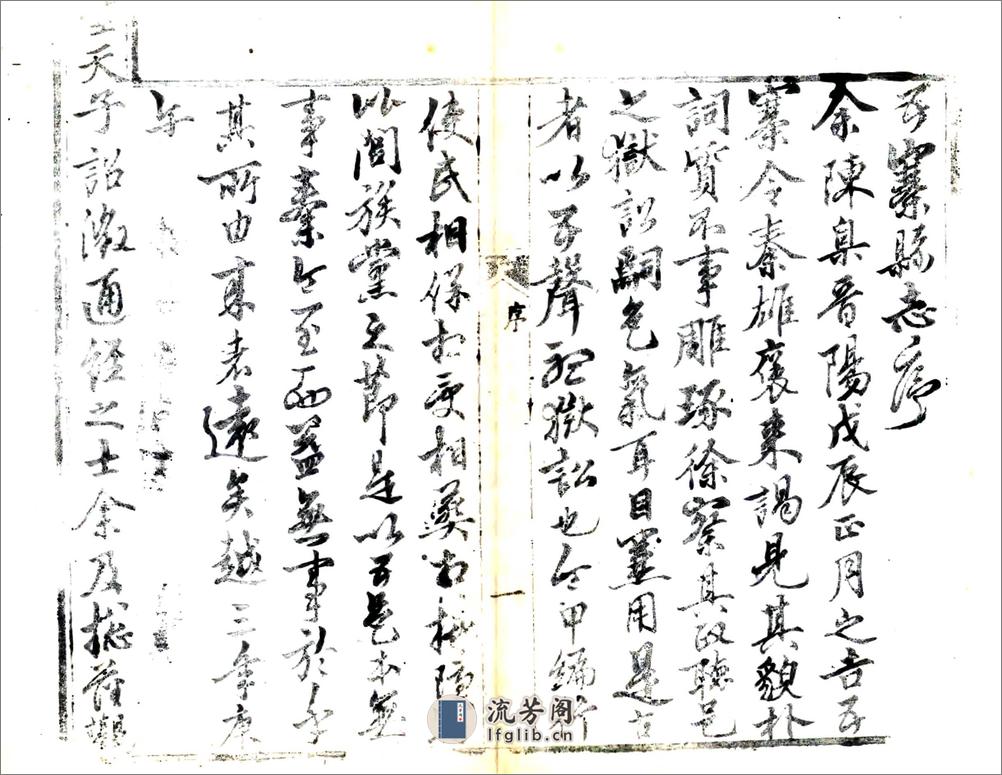 五寨縣志序
余陳臬晉陽戊辰正月之吉五
寨令秦雄褒來謁見其貌朴
詞質不事雕琢徐察其政聽邑
之獄訟色氣耳目用是古
者以五聲聽獄訟也令甲編
序
一
使民相保相受相葬相
以閭族黨之節是以五邑本無
事秦令至而益無事於乎
其所由來者遠矣越三年庚
午
天子詔徵通經之士余及撫藩觀
流芳阁
lfglib.cn